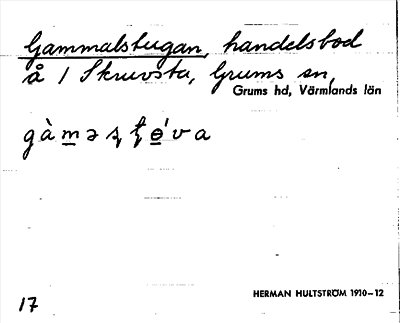 Gammalstugan, handelsbod
å / Skruvsta, Grums sn,
Grums hd, Värmlands län
HERMAN HULTSTRÖM 1910–12
17